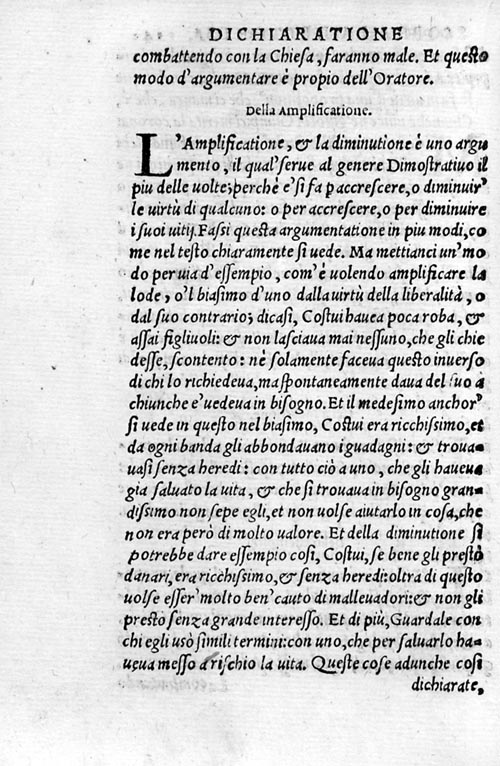 DICHIARATIONE
combattendo con la Chiesa, faranno male. Et questo
modo d'argumentare è propio dell'Oratore.
Della Amplificatione.
L'Amplificatione, & la diminutione è uno argu
mento, il qual'serue al genere Dimostratiuo il
piu delle uolte; perchè e' si fa p accrescere, o diminuir'
le uirtù di qualcuno: o per accrescere, o per diminuire
i suoi uitij. Fassi questa argumentatione in piu modi, co
me nel testo chiaramente si uede. Ma mettianci un'mo
do per uia d'essempio, com'è uolendo amplificare la
lode, o'l biasimo d'uno dalla uirtù della liberalità, o
dal suo contrario; dicasi, Costui hauea poca roba, &
assai figliuoli: & non lasciaua mai nessuno, che gli chie
desse, scontento: nè solamente faceua questo inuerso
di chi lo richiedeua, ma spontaneamente daua del suo à
chiunche e'uedeua in bisogno. Et il medesimo anchor'
si uede in questo nel biasimo, Costui era ricchissimo, et
da ogni banda gli abbondauano i guadagni: & troua-
uasi senza heredi: con tutto ciò a uno, che gli haueua
gia saluato la uita, & che si trouaua in bisogno gran-
dissimo non sepe egli, et non uolse aiutarlo in cosa, che
non era però di molto ualore. Et della diminutione si
potrebbe dare essempio cosi, Costui, se bene gli prestò
danari, era ricchissimo, & senza heredi: oltra di questo
uolse esser'molto ben'cauto di malleuadori: & non gli
prestò senza grande interesso. Et di più, Guardale con
chi egli usò simili termini: con uno, che per saluarlo ha-
ueua messo a rischio la uita. Queste cose adunche cosi
dichiarate,